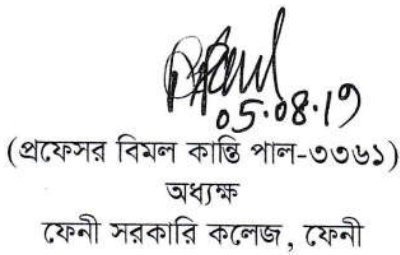 05.08.19
(প্রফেসর বিমল কান্তি পাল-৩৩৬১)
অধ্যক্ষ
ফেনী সরকারি কলেজ, ফেনী